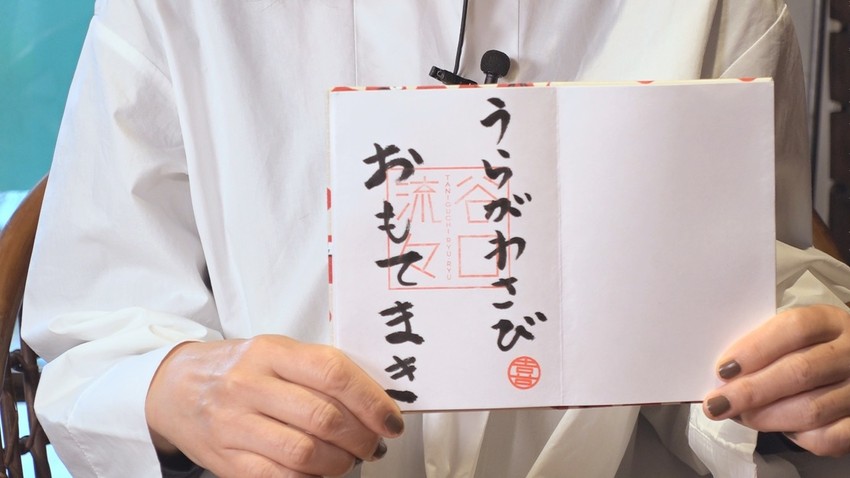 うらがわさび
おもてまき
谷口
流々
TANIGUCHI RYU RYU
喜